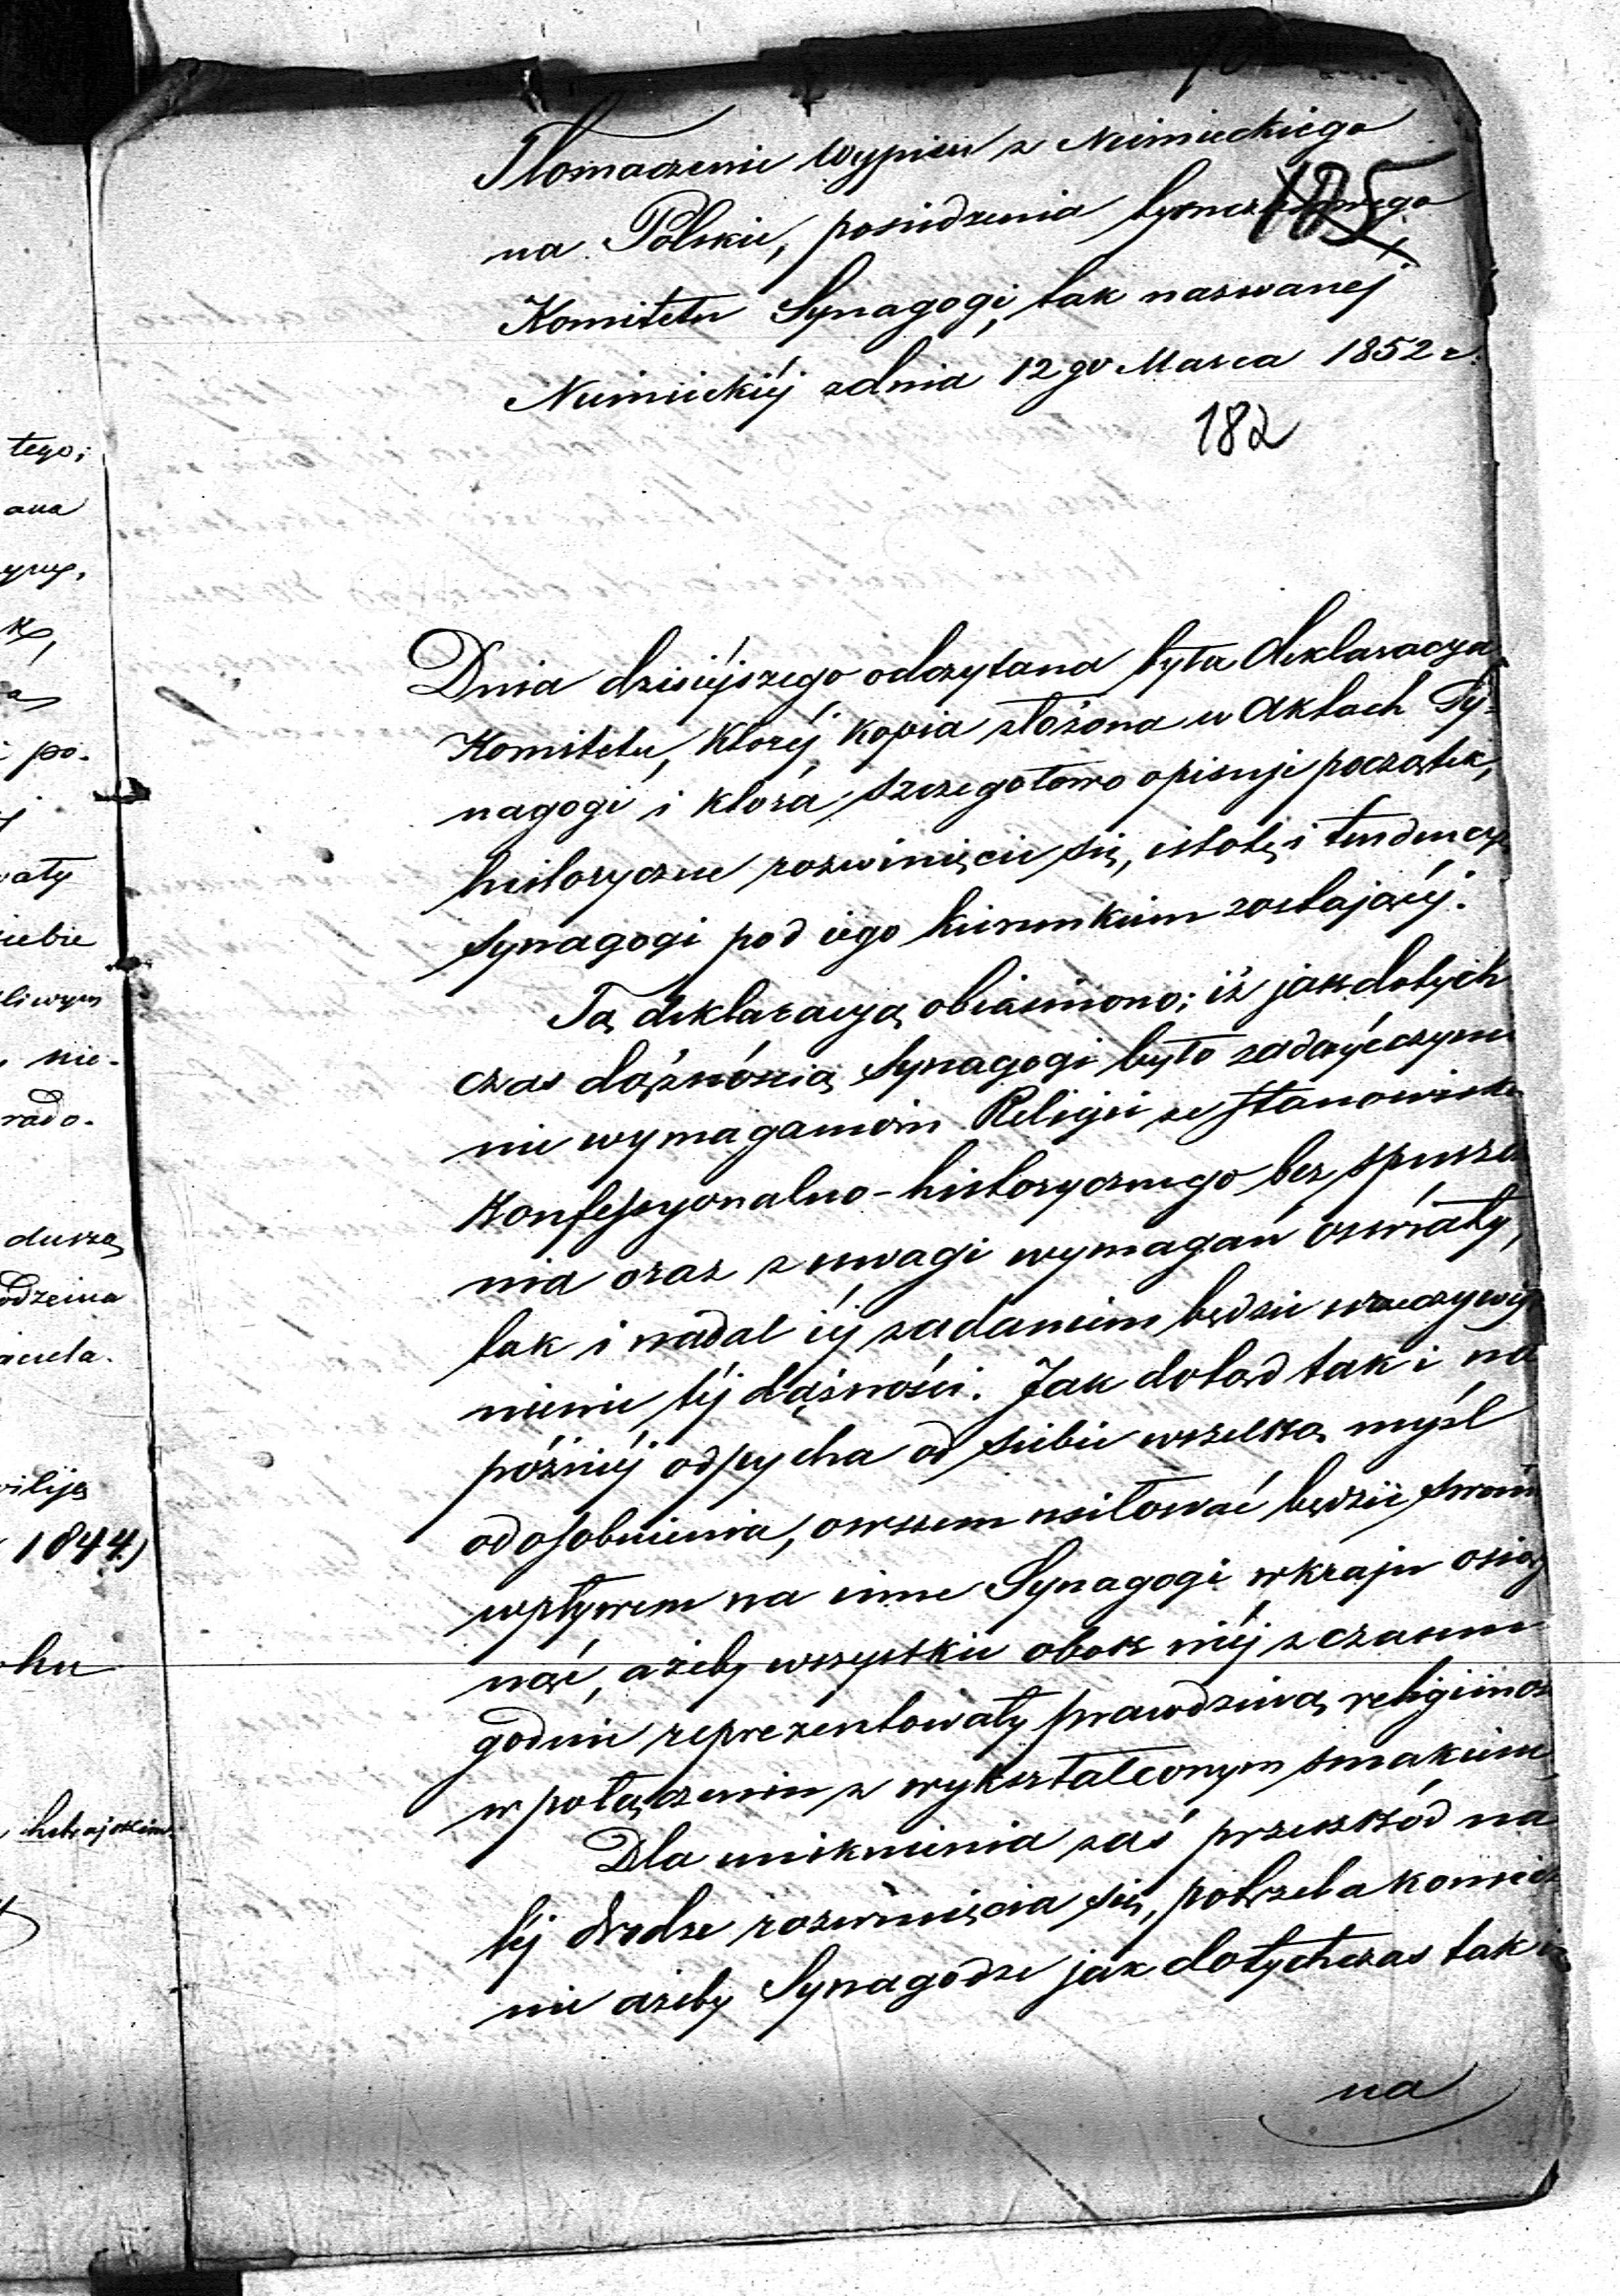 Tłomaczenie wypisu z Niemieckiego
na Polskie, posiedzenia tymczasowego
185
Komitetu Synagogi, tak nazwanéj
Niemieckiéj zdnia 12go Marca 1852 r.
182
Dnia dzisiéjszego odczytana była deklaracya
Komitetu, któréj kopia złożona w Aktach Sy-
nagogi i która szczegółowo opisuje początek,
historyczne rozwinięcie się, istotę i tendencye
Synagogi pod iego kierunkiem zostającéj.
Tą deklaracyą obiaśniono; iż jak dotych
czas dążnością Synagogi było zadosyćczynie
nie wymaganiom Religii ze stanowiska
Konfessyonalno-historycznego bez spuszcza
nia oraz z uwagi wymagań oświaty,
tak i nadal iéj zadaniem będzie urzeczywist
nienie téj dążności. Jak dotąd tak i na
późniéj odpycha od siebie wszelką myśl
odosobnienia, owszem usiłować będzie swoim
wpływem na inne Synagogi w kraju osiąg
nąć, ażeby wszystkie obok niéj z czasem
godnie reprezentowały prawdziwą religijność
w połączeniu z wykształconym smakiem
Dla uniknienia zaś przeszkód na
téj drodze rozwinięcia się, potrzeba koniecz
nie ażeby Synagodze jak dotychczas tak i
na
tego;
po.
siebie
nie-
rado.
duszą
1844)